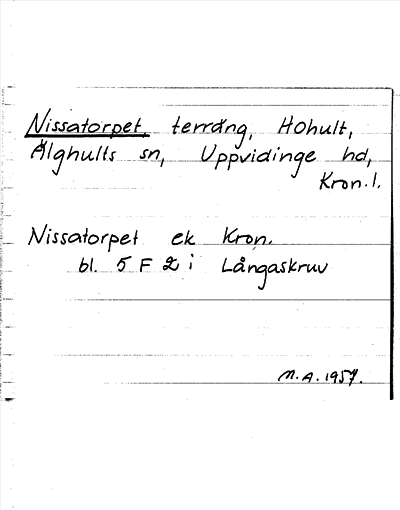 Nissatorpet, terräng, Hohult,
Älghults sn, Uppvidinge hd,
Kron. l.
Nissatorpet ek Kron.
bl. 5 F 2 i Långaskruv
M.A. 1957.